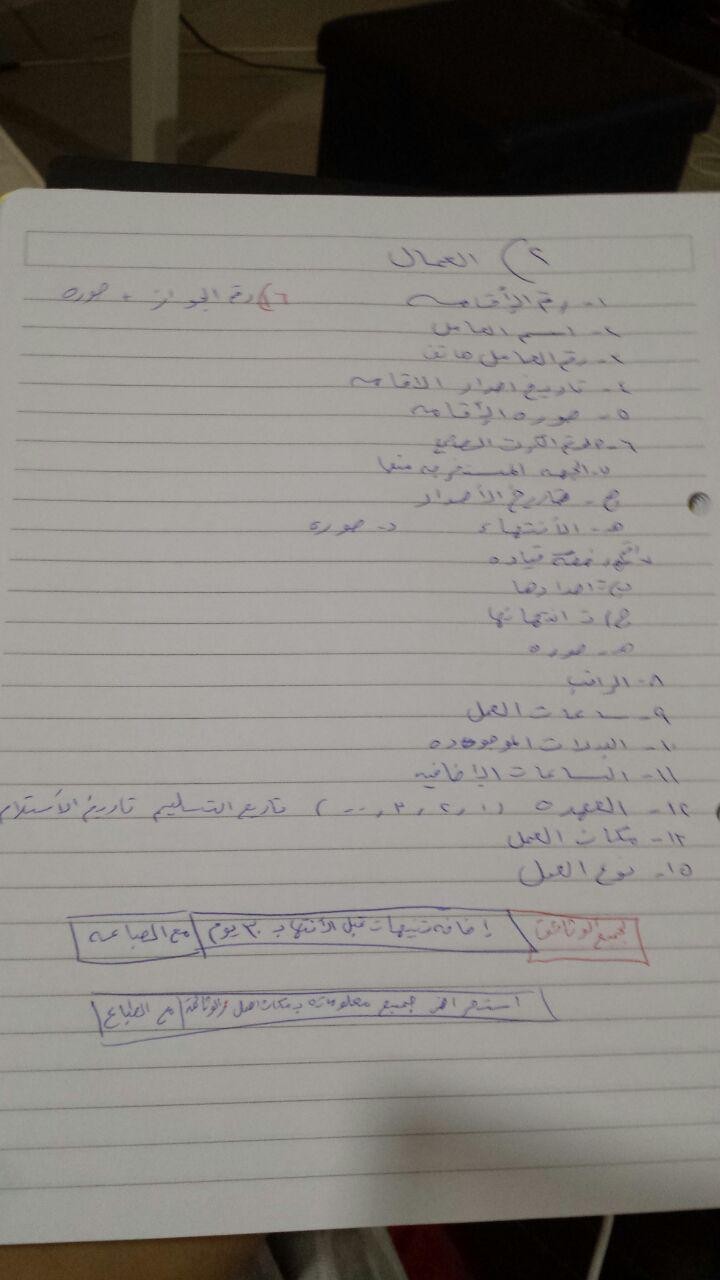 ٢) العمال
١- رقم الأقامه ٦) رقم الجواز + صوره
٢- اسم العامل
٣- رقم العامل هاتف
٤- تاريخ اصدار الاقامه
٥- صوره الإقامه
٦- رقم الكرت الصحي
ب. الجهه المستخرجه منها
ج- تاريخ الأصدار
هـ- الأنتهاء د- صوره
رخصة قياده
ب) ت اصدارها
ج) ت انتهائها
هـ- صوره
٨- الراتب
٩- ساعات العمل
١٠- البدلات الموجوده
١١- الساعات الإضافيه
١٢- العهده (١, ٢, ٣, ...) تاريخ التسليم تاريخ الأستلام
١٣- مكان العمل
١٥- نوع العمل
لجميع الوثائق إضافه تنبيهات قبل الأنتهاء بـ ٣٠ يوم مع الطباعه
استخراج جميع معلوماته بمكان العمل والوثائق مع الطباع